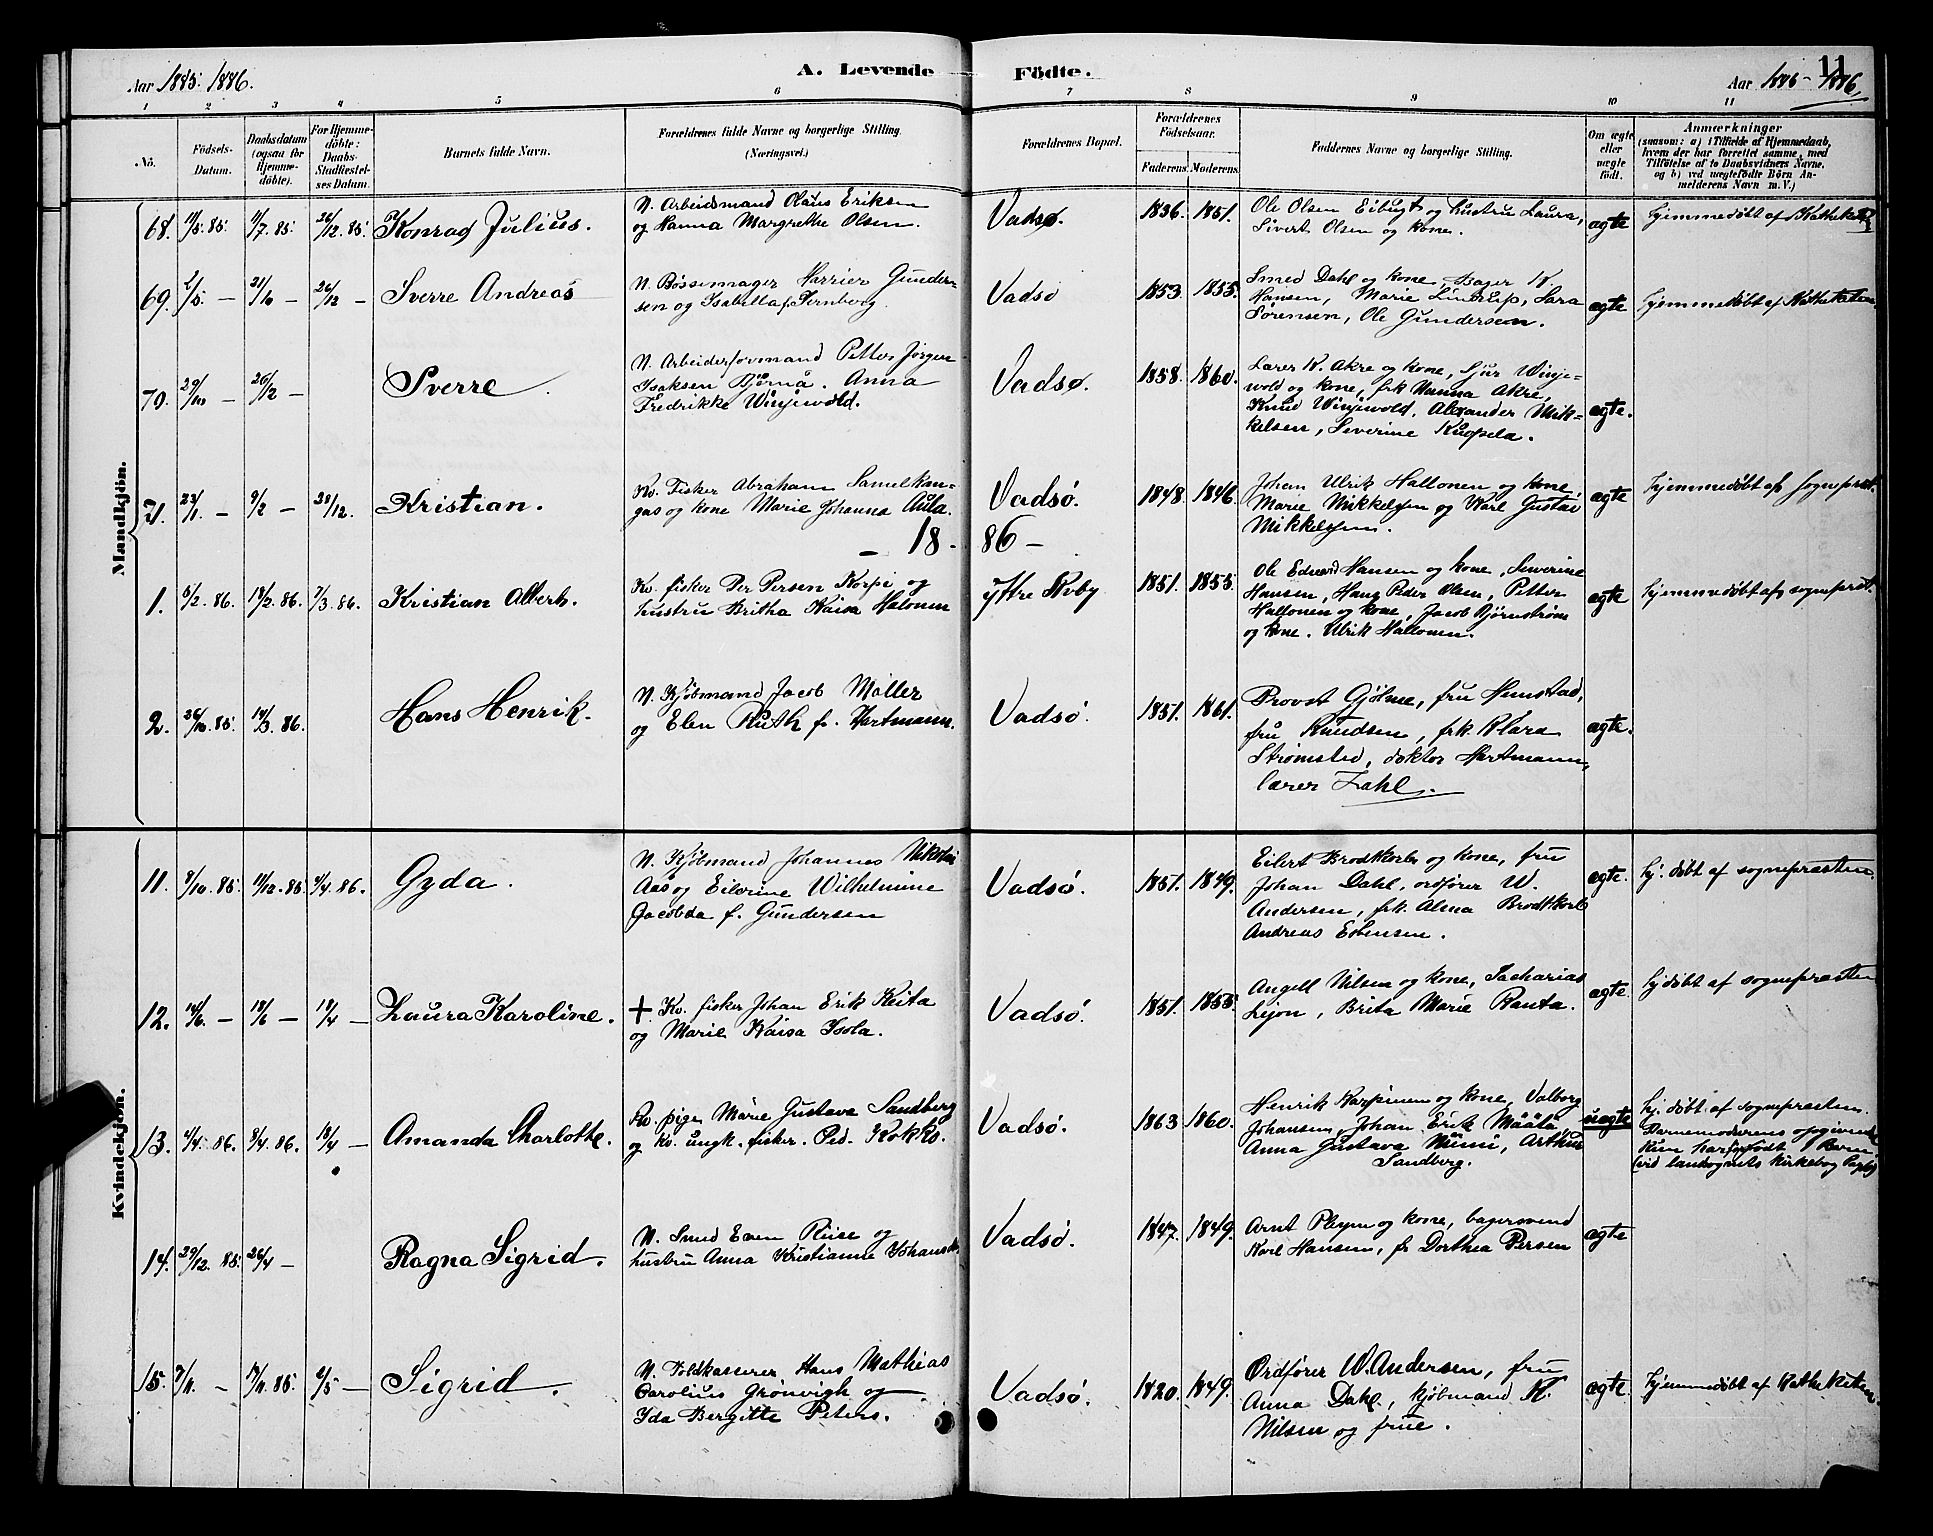 Aar 1885. 1886.
A. Levende Födte.
11
Aar 1885 - 1886
1 2 3 4 5 6 7 8 9 10 11
No.
Födsels-Datum.
Daabsdatum (ogsaa for Hjemme-döbte).
For Hjemme-döbte: Daabs-Stadfæstel-ses Datum.
Barnets fulde Navn.
Forældrenes fulde Navne og borgerlige Stilling.
(Næringsvei.)
Forældrenes Bopæl.
Forældrenes Födselsaar.
Faderens. Moderens.
Faddernes Navne og borgerlige Stilling.
Om ægte eller uægte födt.
Anmærkninger
(saasom: a) i Tilfælde af Hjemmedaab,
hvem der har forrettet samme, med
Tilföielse af to Daabsvidners Navne,
og b) ved uægtefödte Börn An-
melderens Navn m. V.)
Mandkjön.
68. 11/5 85. 9/7 85. 26/12 85. Konrad Julius.
N. Arbeidsmand Olaus Eriksen
og Hanna Margrethe Olsen.
Vadsø. 1836. 1851.
Ole Olsen Eibugt og hustru Laura,
Sivert Olsen og kone.
ægte
hjemmedøbt af Katheket
69. 2/5 — 21/10 — 26/12 — Sverre Andreas
N. Bøssemager Harrier Gunder-
sen og Isabella f. Fernborg.
Vadsø 1853. 1855.
Smed Dahl og kone, Bager K.
Hansen, Marie Lindrup, Lara
Sørensen, Ole Gundersen.
ægte
hjemmedøbt af Katheketen
70. 29/10 — 26/12 — Sverre.
N. Arbeiderformand Petter Jørgen
Isaksen Bjørnå. Anna
Fredrikke Winjewold.
Vadsø. 1858. 1860.
Lærer K. Akre og kone, Sjur Winje-
vold og kone, frk Hanna Akre,
Knud Winjevold, Alexander Mik-
kelsen, Severine Kuopela.
ægte.
71. 23/1 — 9/2 — 28/12. Kristian.
Kv. Fisker Abraham Samelkan-
gas og kone Marie Johanna Aula.
Vadsø. 1848. 1846.
Johan Ulrik Hallonen og kone
Marie Mikkelsen og Karl Gustav
Mikkelsen.
ægte
hjemmedøbt af Sognepræst.
— 18 - 86 —
1. 5/2. 86. 18/2. 86. 7/3. 86. Kristian Albert.
Kv. fisker Per Persen Korpi og
hustru Britha Kaisa Halonen
Yttre Kvby 1851. 1855.
Ole Edvard Hansen og kone, Severine
Hansen, Hans Peder Olsen, Petter
Hallonen og kone, Jacob Bjørnstrøm
og kone. Ulrik Hallonen.
ægte
hjemmedøbt af sognepræst.
2. 26/10 85. 14/3. 86. Hans Henrik.
N. Kjøbmand Jacob Møller
og Elen Ruth f. Hartmann.
Vadsø. 1851. 1861.
Provst Gjølme, fru Hunstad,
fru Knudsen, frk Klara
Strømsted, doktor Hartmann,
lærer Zahl.
ægte.
Kvindekjön.
11. 8/10. 85. 11/12. 85. 4/4. 86. Gyda.
N. Kjøbmand Johannes Nikolai
Aas og Eilerine Wilhelmine
Jacobda f. Gundersen
Vadsø. 1851. 1849.
Eilert Brodtkorb og kone, fru
Johan Dahl, ordfører W.
Andersen, frk. Alma Brodtkorb
Andreas Esbensen.
ægte.
hj. døbt af sognepræsten.
12. 14/6. — 18/6 — 18/4 — Laura Karoline.
+ Kv. fisker Johan Erik Keita
og Marie Kaisa Isola.
Vadsø. 1851. 1855.
Angell Nilsen og kone, Sacharias
Lejon, Brita Marie Ranta.
ægte.
hj døbt af sognepræsten
13. 4/4. 86. 8/4. 86. 18/4 — Amanda Charlotte.
Kv. pige Marie Gustava Sandberg
og Kv. ungk. fisker. Ped. Kokko.
Vadsø. 1863 1860.
Henrik Karpinen og kone, Valborg
Johansen, Johan Erik Määtä,
Anna Gustava Niemi, Arthur
Sandberg.
uægte
hj. døbt af sognepræsten.
Barnemoderens opgivende
Kun har født 1 Barn
(vid landsognets kirkebog
14. 29/12. 85. 26/4 — Ragna Sigrid.
N. Smed Even Riise og
hustru Anna Kristianne Johansd.
Vadsø. 1847. 1849.
Arnt Pleym og kone, bagersvend
Karl Hansen, fr Dorthea Persen
ægte
15. 7/11 — 17/11. 85. 2/5 — Sigrid.
N. Toldkasserer Hans Mathias
Carolius Grønvigh og
Ida Bergitte Peters.
Vadsø. 1820. 1849.
Ordfører W. Andersen, fru
Anna Dahl, kjøbmand K.
Nilsen og frue.
ægte.
hjemmedøbt af Katheketen.